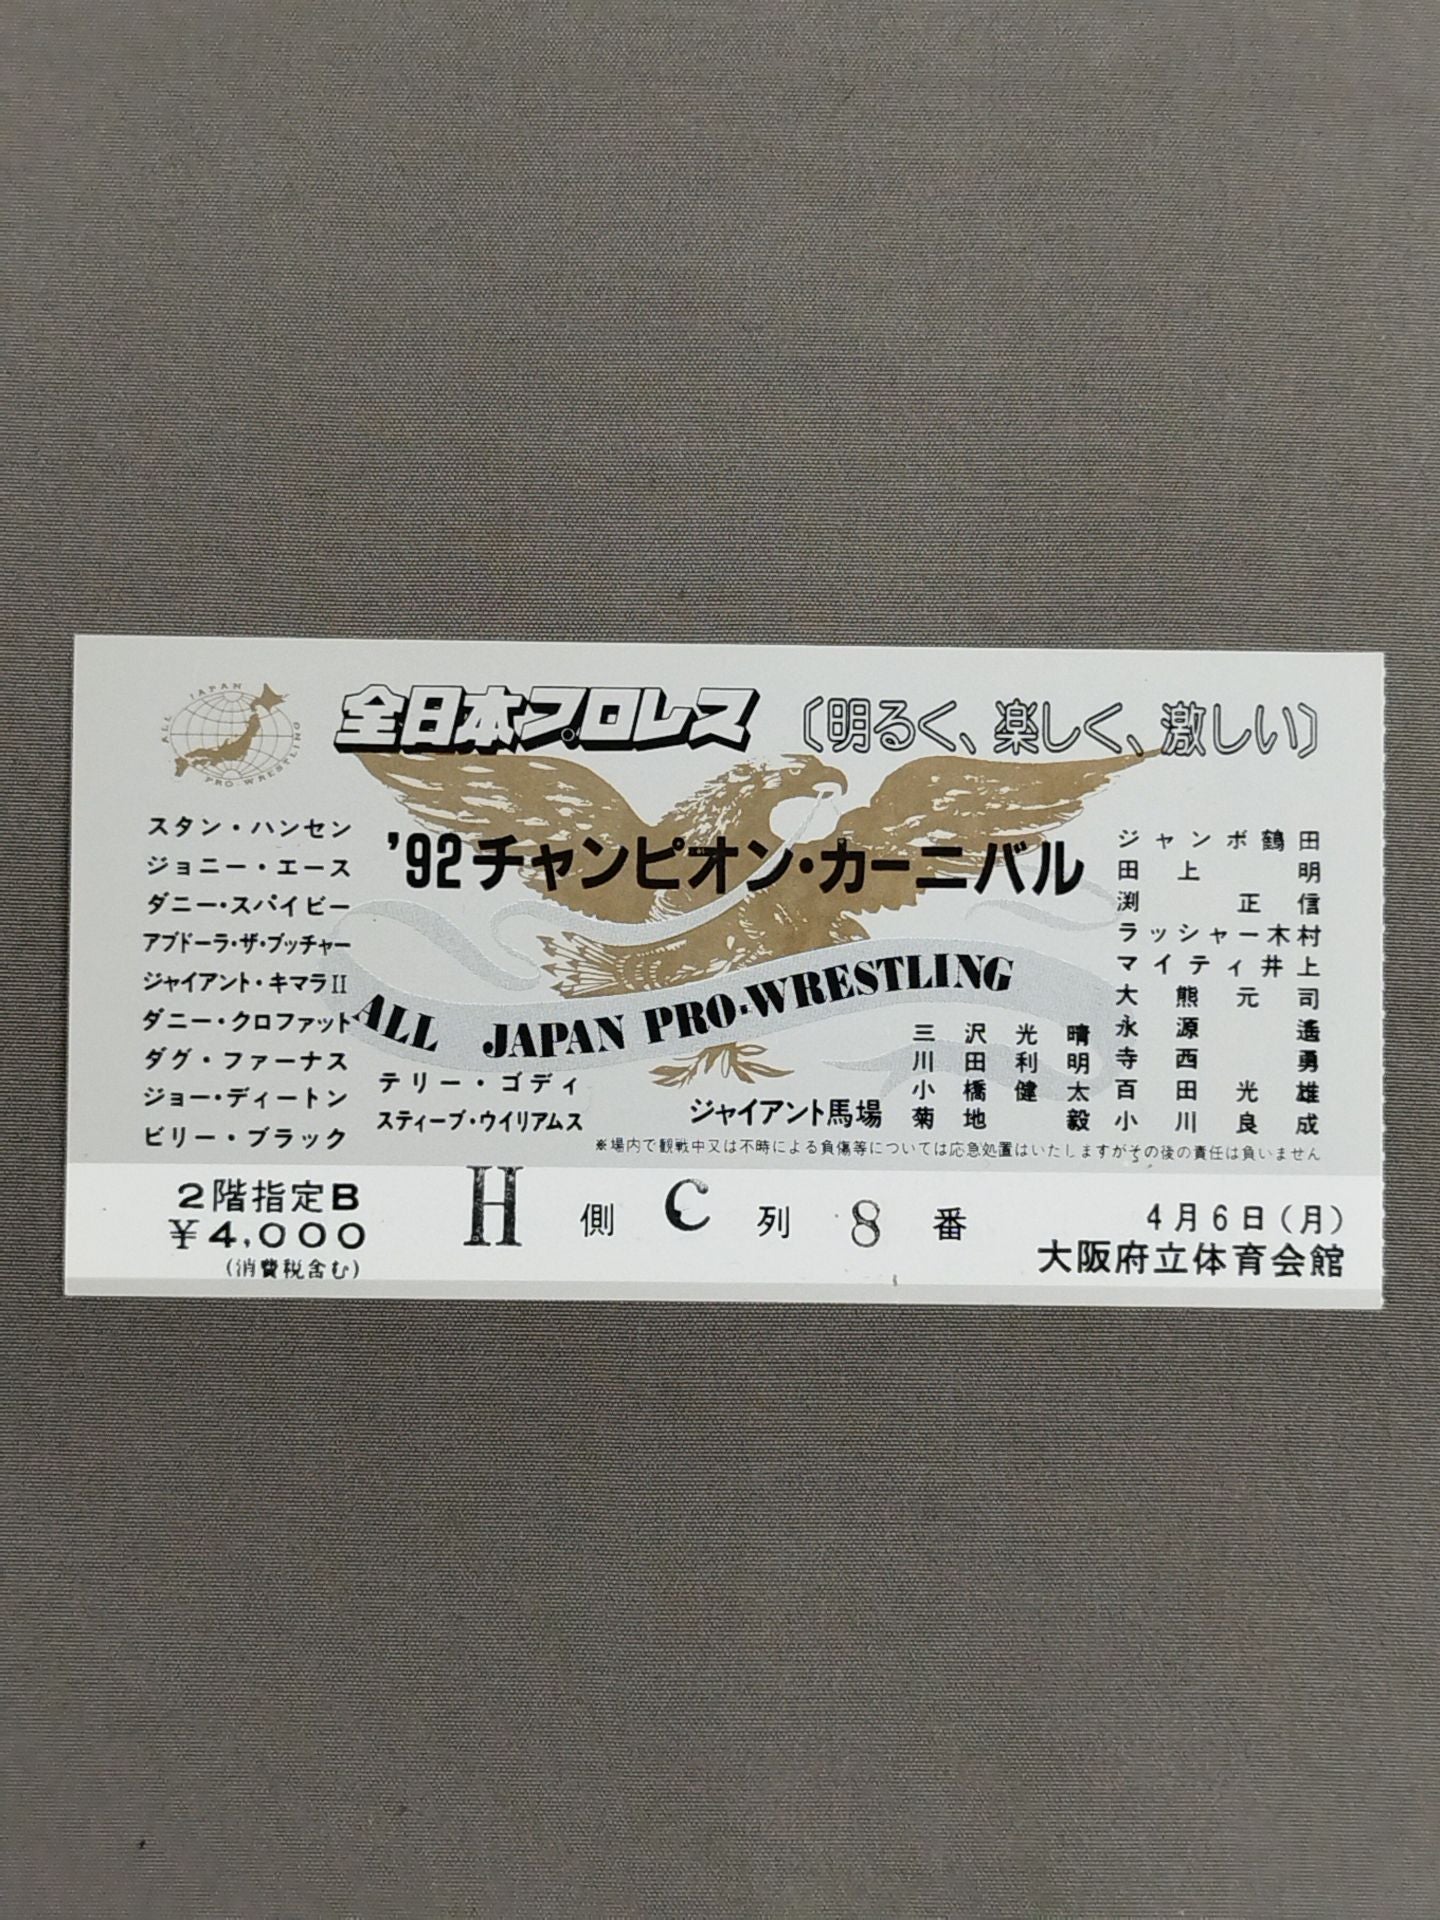 ALL JAPAN PRO-WRESTLING
全日本プロレス
〔明るく、楽しく、激しい〕
'92チャンピオン・カーニバル
ALL JAPAN PRO-WRESTLING
スタン・ハンセン
ジョニー・エース
ダニー・スパイビー
アブドーラ・ザ・ブッチャー
ジャイアント・キマラII
ダニー・クロファット
ダグ・ファーナス
ジョー・ディートン
ビリー・ブラック
テリー・ゴディ
スティーブ・ウイリアムス
ジャイアント馬場
三沢光晴
川田利明
小橋健太
菊地毅
ジャンボ鶴田
田上明
渕正信
ラッシャー木村
マイティ井上
大熊元司
永源遙
寺西勇
百田光雄
小川良成
※場内で観戦中又は不時による負傷等については応急処置はいたしますがその後の責任は負いません
2階指定B
¥4,000
(消費税含む)
H側 C列 8番
4月6日(月)
大阪府立体育会館